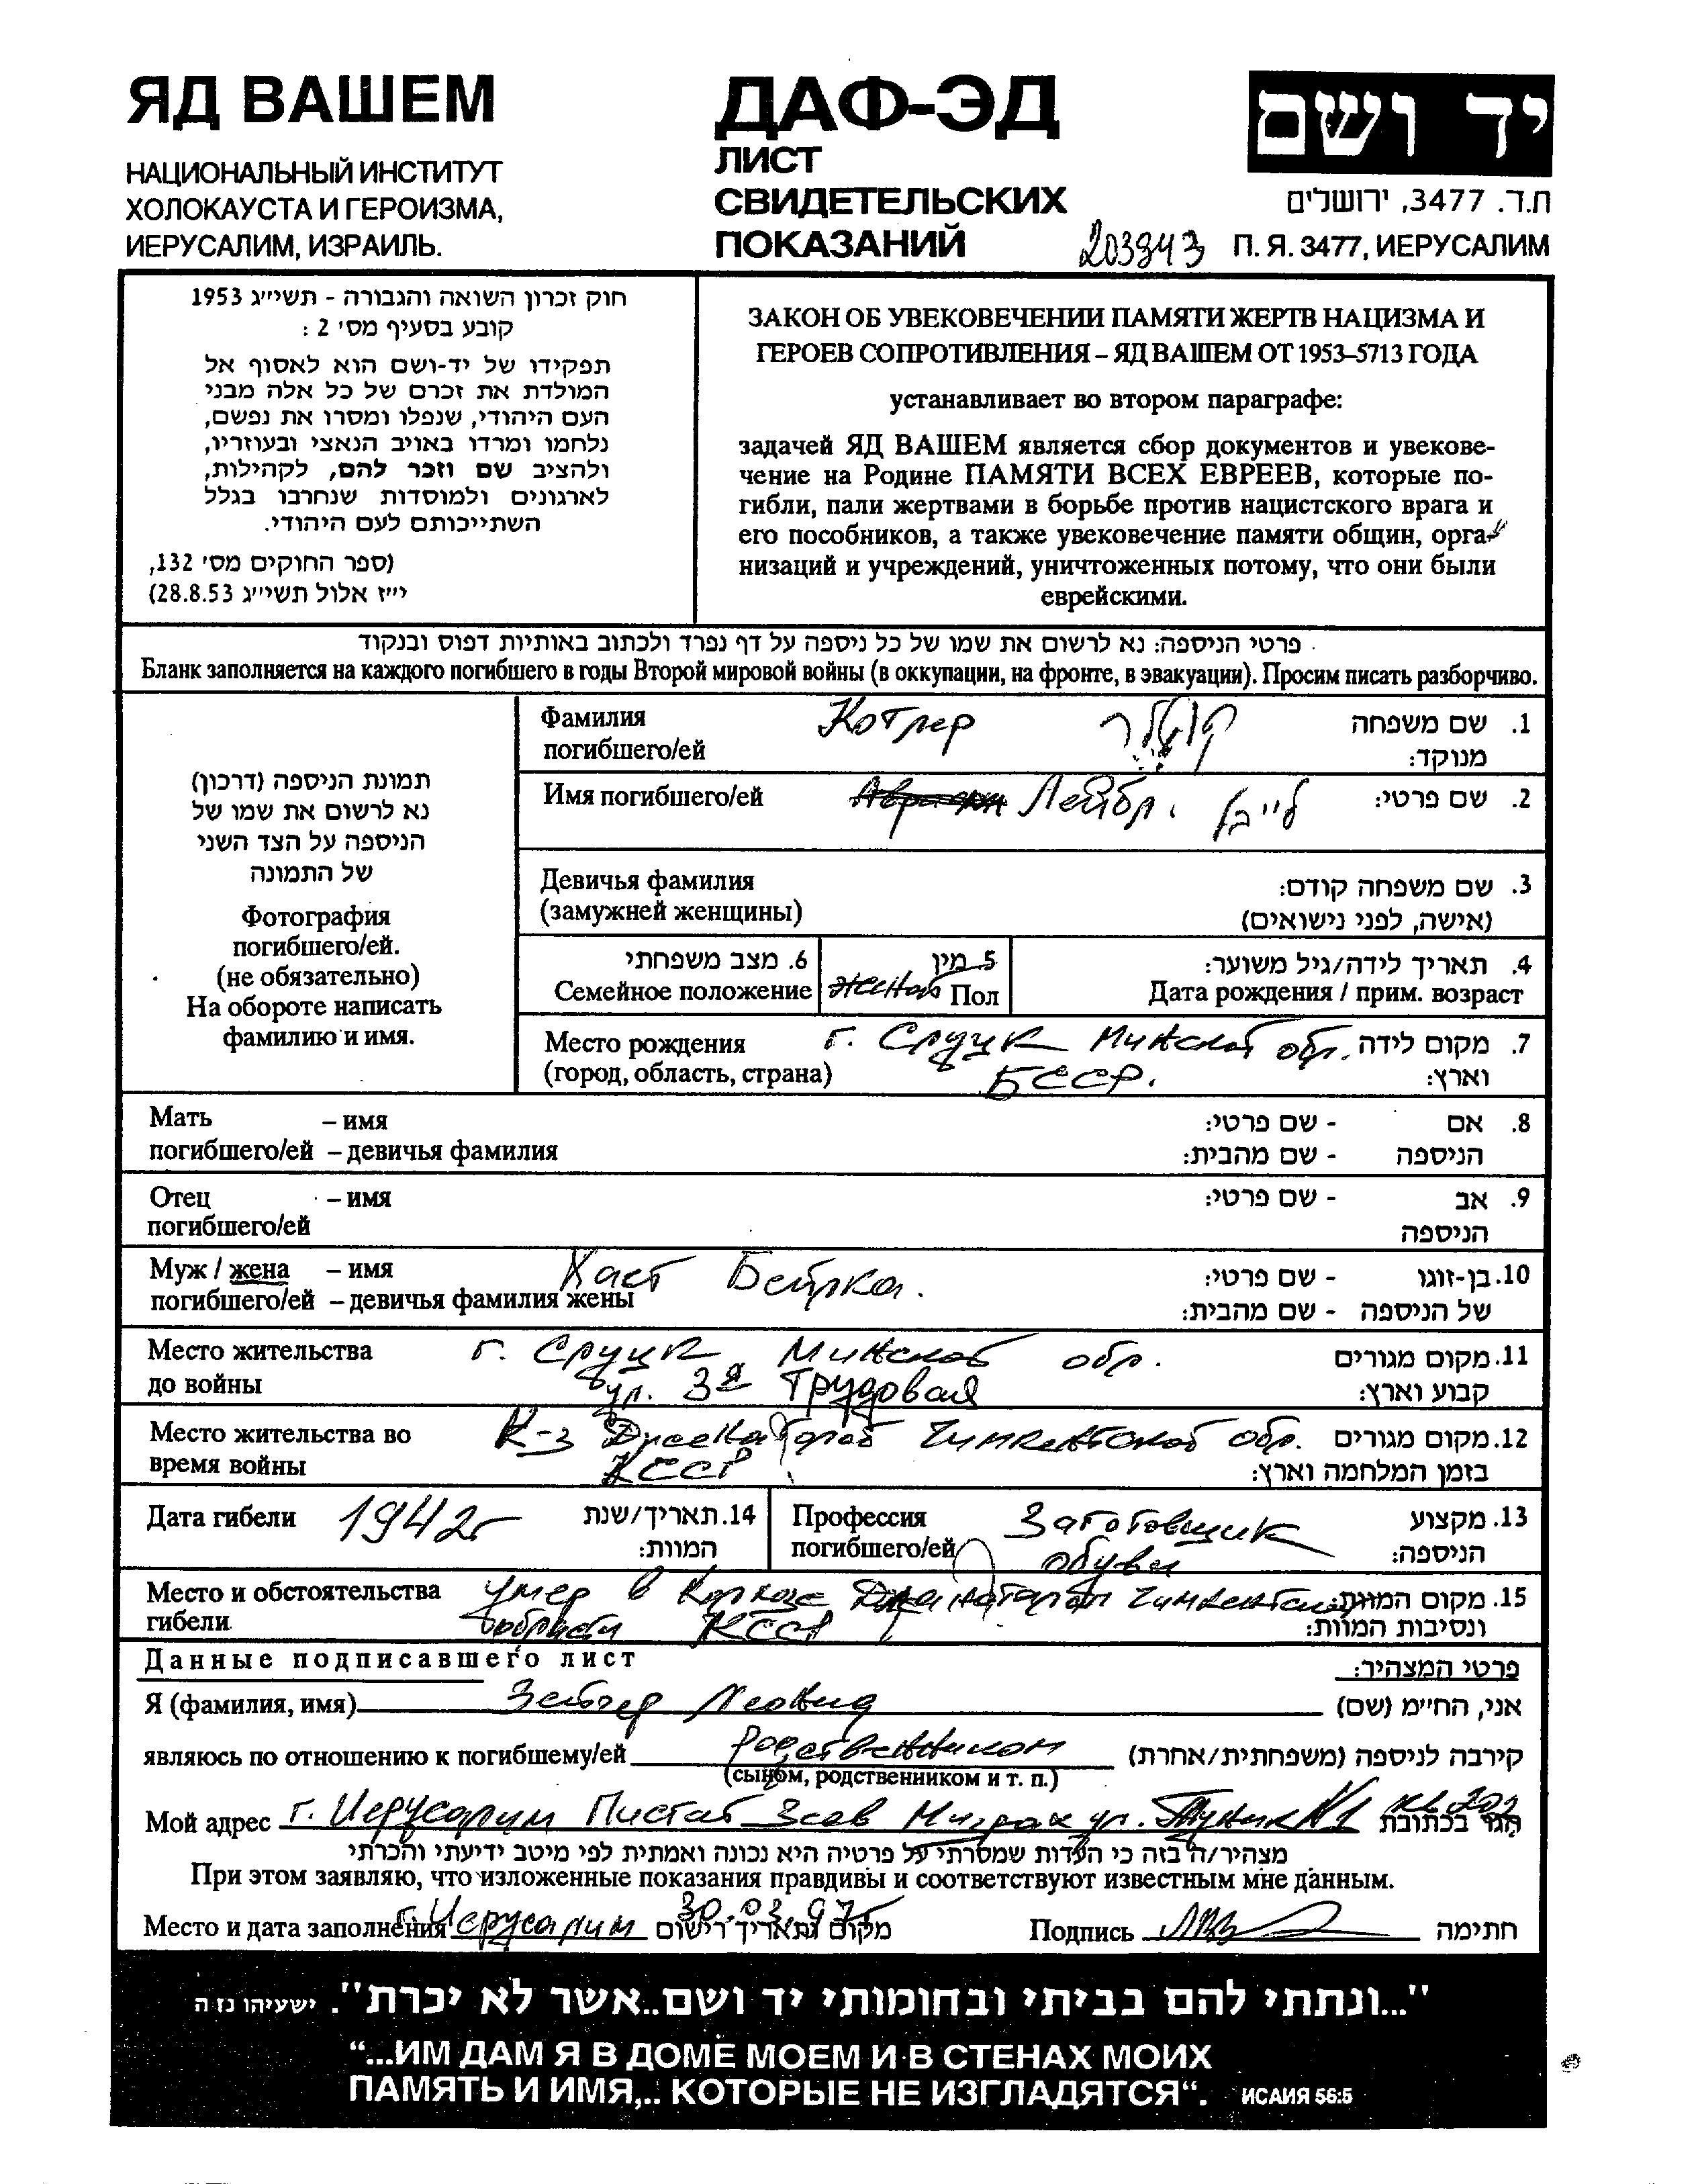 ЯД ВАШЕМ
НАЦИОНАЛЬНЫЙ ИНСТИТУТ
ХОЛОКАУСТА И ГЕРОИЗМА,
ИЕРУСАЛИМ, ИЗРАИЛЬ.
ДАФ-ЭД
ЛИСТ
СВИДЕТЕЛЬСКИХ
ПОКАЗАНИЙ
203943
יד ושם
ת.ד. 3477, ירושלים
П. Я. 3477, ИЕРУСАЛИМ
חוק זכרון השואה והגבורה - תשי״ג 1953
קובע בסעיף מס׳ 2 :
תפקידו של יד-ושם הוא לאסוף אל
המולדת את זכרם של כל אלה מבני
העם היהודי, שנפלו ומסרו את נפשם,
נלחמו ומרדו באויב הנאצי ובעוזריו,
ולהציב שם וזכר להם, לקהילות,
לארגונים ולמוסדות שנחרבו בגלל
השתייכותם לעם היהודי.
(ספר החוקים מס׳ 132,
י״ז אלול תשי״ג 28.8.53)
ЗАКОН ОБ УВЕКОВЕЧЕНИИ ПАМЯТИ ЖЕРТВ НАЦИЗМА И
ГЕРОЕВ СОПРОТИВЛЕНИЯ – ЯД ВАШЕМ ОТ 1953–5713 ГОДА
устанавливает во втором параграфе:
задачей ЯД ВАШЕМ является сбор документов и увекове-
чение на Родине ПАМЯТИ ВСЕХ ЕВРЕЕВ, которые по-
гибли, пали жертвами в борьбе против нацистского врага и
его пособников, а также увековечение памяти общин, орга-
низаций и учреждений, уничтоженных потому, что они были
еврейскими.
פרטי הניספה: נא לרשום את שמו של כל ניספה על דף נפרד ולכתוב באותיות דפוס ובנקוד
Бланк заполняется на каждого погибшего в годы Второй мировой войны (в оккупации, на фронте, в эвакуации). Просим писать разборчиво.
תמונת הניספה (דרכון)
נא לרשום את שמו של
הניספה על הצד השני
של התמונה
Фотография
погибшего/ей.
(не обязательно)
На обороте написать
фамилию и имя.
Фамилия Котлер קוטלר 1. שם משפחה
погибшего/ей מנוקד:
Имя погибшего/ей Лейбл. לייבל 2. שם פרטי:
Девичья фамилия 3. שם משפחה קודם:
(замужней женщины) (אישה, לפני נישואים)
6. מצב משפחתי 5. מין 4. תאריך לידה/גיל משוער:
Семейное положение женат Пол Дата рождения / прим. возраст
Место рождения г. Слуцк Минской обл. 7. מקום לידה
(город, область, страна) БССР. וארץ:
Мать – имя 8. אם - שם פרטי:
погибшего/ей – девичья фамилия הניספה - שם מהבית:
Отец – имя 9. אב - שם פרטי:
погибшего/ей הניספה
Муж / жена – имя Хаст Бейлка. 10. בן-זוגו - שם פרטי:
погибшего/ей – девичья фамилия жены של הניספה - שם מהבית:
Место жительства г. Слуцк Минской обл. 11. מקום מגורים
до войны ул. 3я Трудовая קבוע וארץ:
Место жительства во К-з Чимкентской обл. 12. מקום מגורים
время войны КССР בזמן המלחמה וארץ:
Дата гибели 1942г 14. תאריך/שנת
המוות:
Профессия Заготовщик 13. מקצוע
погибшего/ей обуви הניספה:
Место и обстоятельства умер в Колхозе 15. מקום המוות:
гибели КССР ונסיבות המוות:
Данные подписавшего лист פרטי המצהיר:
Я (фамилия, имя) Леонид אני, החי״מ (שם)
являюсь по отношению к погибшему/ей родственником קירבה לניספה (משפחתית/אחרת)
(сыном, родственником и т. п.)
Мой адрес г. Иерусалим Писгат Зеев ул. N1 кв 202 הגר בכתובת
מצהיר/ה בזה כי העדות שמסרתי על פרטיה היא נכונה ואמתית לפי מיטב ידיעתי והכרתי
При этом заявляю, что изложенные показания правдивы и соответствуют известным мне данным.
Место и дата заполнения г. Иерусалим 30.03.97г מקום ותאריך רישום Подпись חתימה
"...ונתתי להם בביתי ובחומותי יד ושם..אשר לא יכרת". ישעיהו נז ה
“...ИМ ДАМ Я В ДОМЕ МОЕМ И В СТЕНАХ МОИХ
ПАМЯТЬ И ИМЯ,.. КОТОРЫЕ НЕ ИЗГЛАДЯТСЯ“. ИСАИЯ 56:5